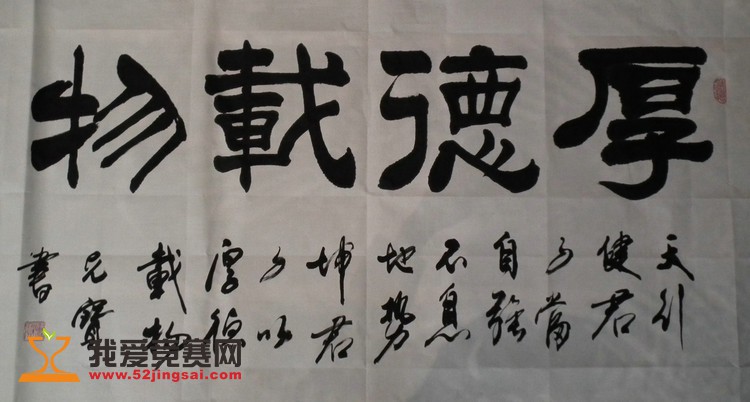 厚德載物
天行
健君
子當
自强
不息
地势
坤君
子以
厚德
載物
兄寶
書
我爱竞赛网
www.52jingsai.com